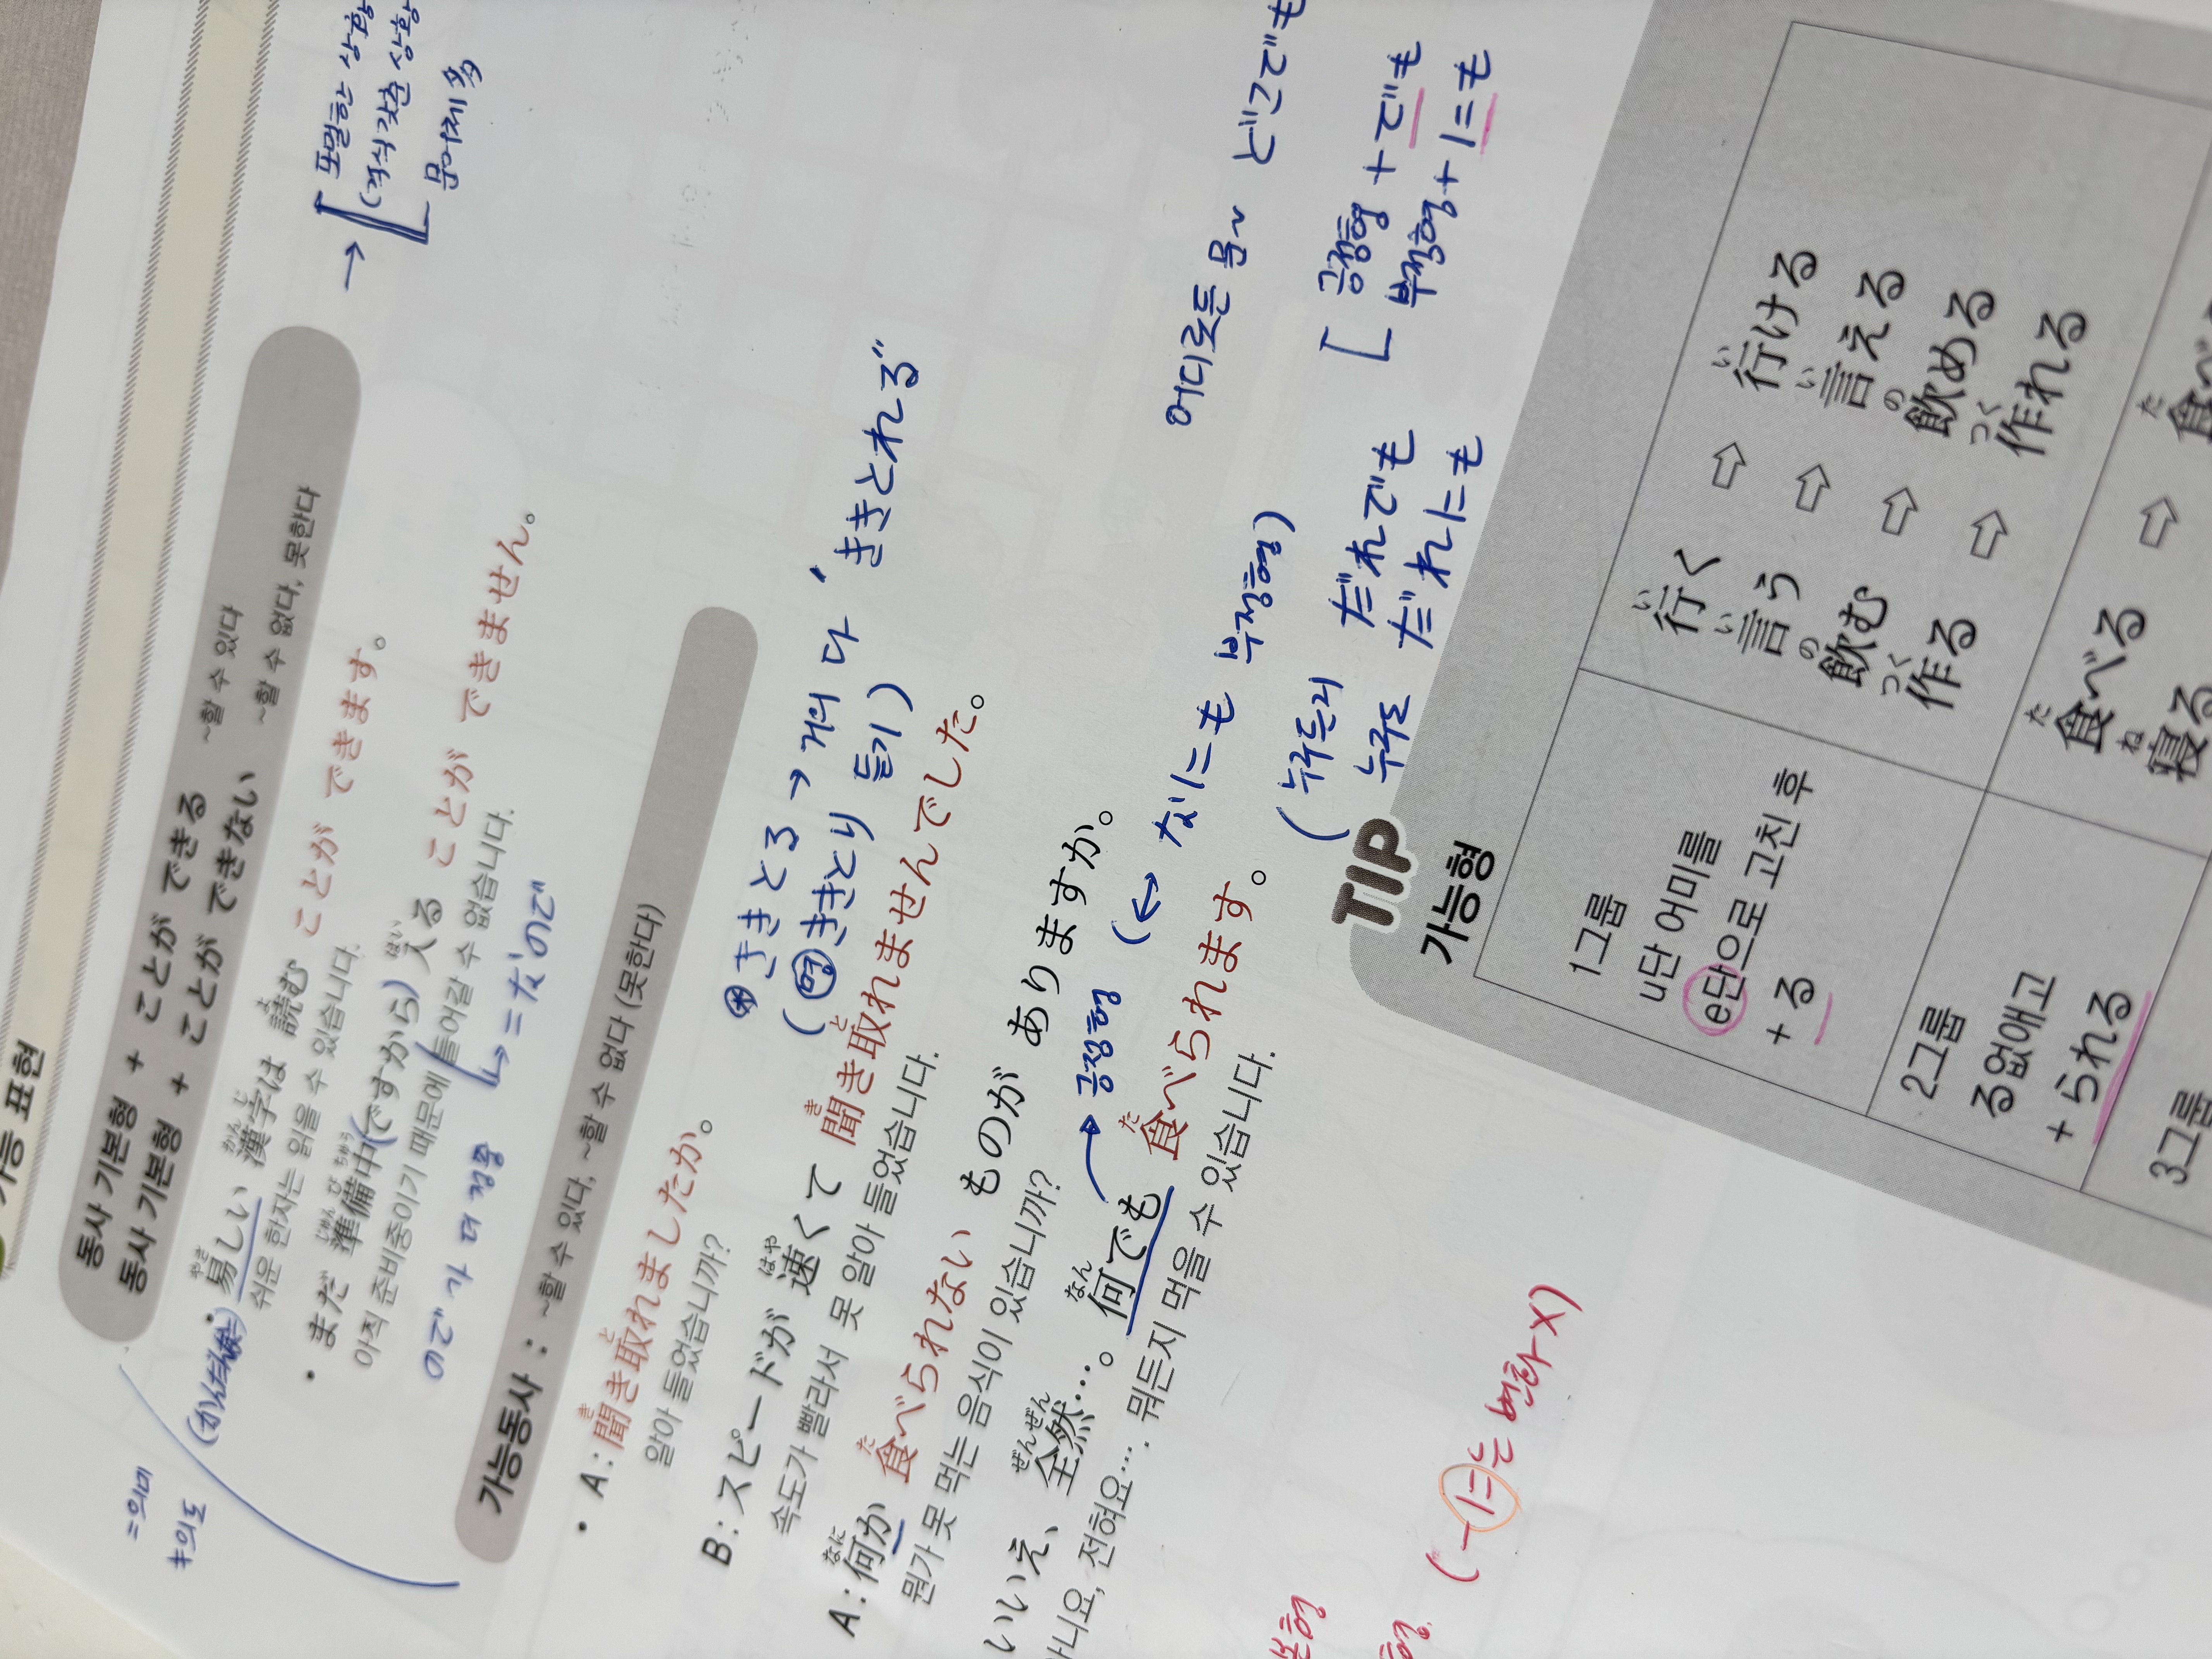 가능 표현
동사 기본형 + ことが できる ~할 수 있다
동사 기본형 + ことが できない ~할 수 없다, 못한다
→ [ 포멀한 상황
(격식 갖춘 상황
문어체 多
• 易しい 漢字は 読む ことが できます。
やさ かんじ よ
쉬운 한자는 읽을 수 있습니다.
• まだ 準備中(ですから) 入る ことが できません。
じゅんびちゅう はい
아직 준비중이기 때문에 들어갈 수 없습니다.
ので가 더 정중
↳ = なので
= 의미
≠ 의도
가능동사 : ~할 수 있다, ~할 수 없다 (못한다)
• A : 聞き取れましたか。
き と
알아 들었습니까?
B : スピードが 速くて 聞き取れませんでした。
はや き と
속도가 빨라서 못 알아 들었습니다.
ききとる → 거의 다 'ききとれる"
(명 ききとり 듣기)
A : 何か 食べられない ものが ありますか。
なに た
뭔가 못 먹는 음식이 있습니까?
いいえ、全然…。何でも 食べられます。
ぜんぜん なん た
아니요, 전혀요…. 뭐든지 먹을 수 있습니다.
→ 긍정형 (↔ なにも 부정형)
어디로든 どこでも
(누구든지 だれでも [ 긍정형 + でも
누구도 だれにも 부정형 + にも
TIP
가능형
1그룹
u단 어미를
e단으로 고친 후
+ る
行く ⇨ 行ける
い い
言う ⇨ 言える
い い
飲む ⇨ 飲める
の の
作る ⇨ 作れる
つく つく
2그룹
る없애고
+ られる
食べる ⇨ 食べ
た た
寝る
ね
3그룹
(一に는 변화 X)